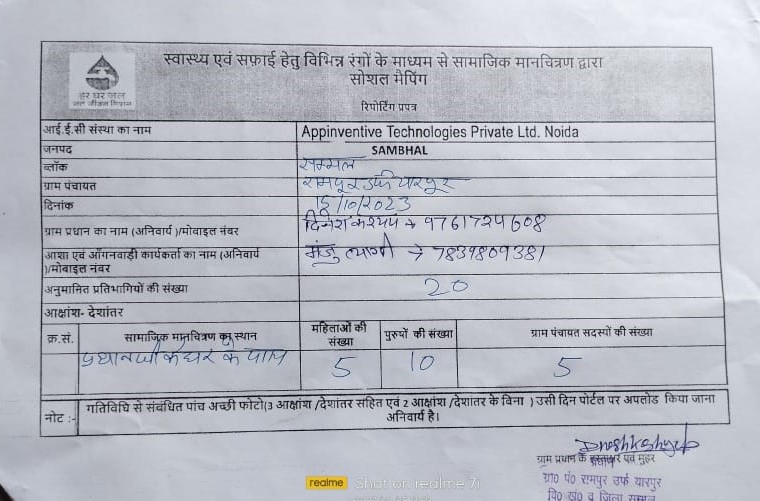 स्वास्थ्य एवं सफ़ाई हेतु विभिन्न रंगों के माध्यम से सामाजिक मानचित्रण द्वारा
सोशल मैपिंग
रिपोर्टिंग प्रपत्र
हर घर जल
जल जीवन मिशन
आई.ई.सी संस्था का नाम Appinventive Technologies Private Ltd. Noida
जनपद SAMBHAL
ब्लॉक सम्भल
ग्राम पंचायत रामपुर उर्फ यारपुर
दिनांक 15/10/2023
ग्राम प्रधान का नाम (अनिवार्य )/मोबाइल नंबर दिनेश कश्यप → 9761724608
आशा एवं आँगनवाड़ी कार्यकर्ता का नाम (अनिवार्य
)/मोबाइल नंबर मंजु त्यागी → 7839809381
अनुमानित प्रतिभागियों की संख्या 20
आक्षांश- देशांतर
क्र.सं. सामाजिक मानचित्रण का स्थान महिलाओं की संख्या पुरुषों की संख्या ग्राम पंचायत सदस्यों की संख्या
प्रधान जी के घर के पास 5 10 5
नोट :- गतिविधि से संबंधित पांच अच्छी फोटो(3 आक्षांश /देशांतर सहित एवं 2 आक्षांश /देशांतर के विना ) उसी दिन पोर्टल पर अपलोड किया जाना
अनिवार्य है।
ग्राम प्रधान के हस्ताक्षर एवं मुहर
प्रधान
ग्रा० पं० रामपुर उर्फ यारपुर
वि० खं० व जिला सम्भल
realme Shot on realme 7i